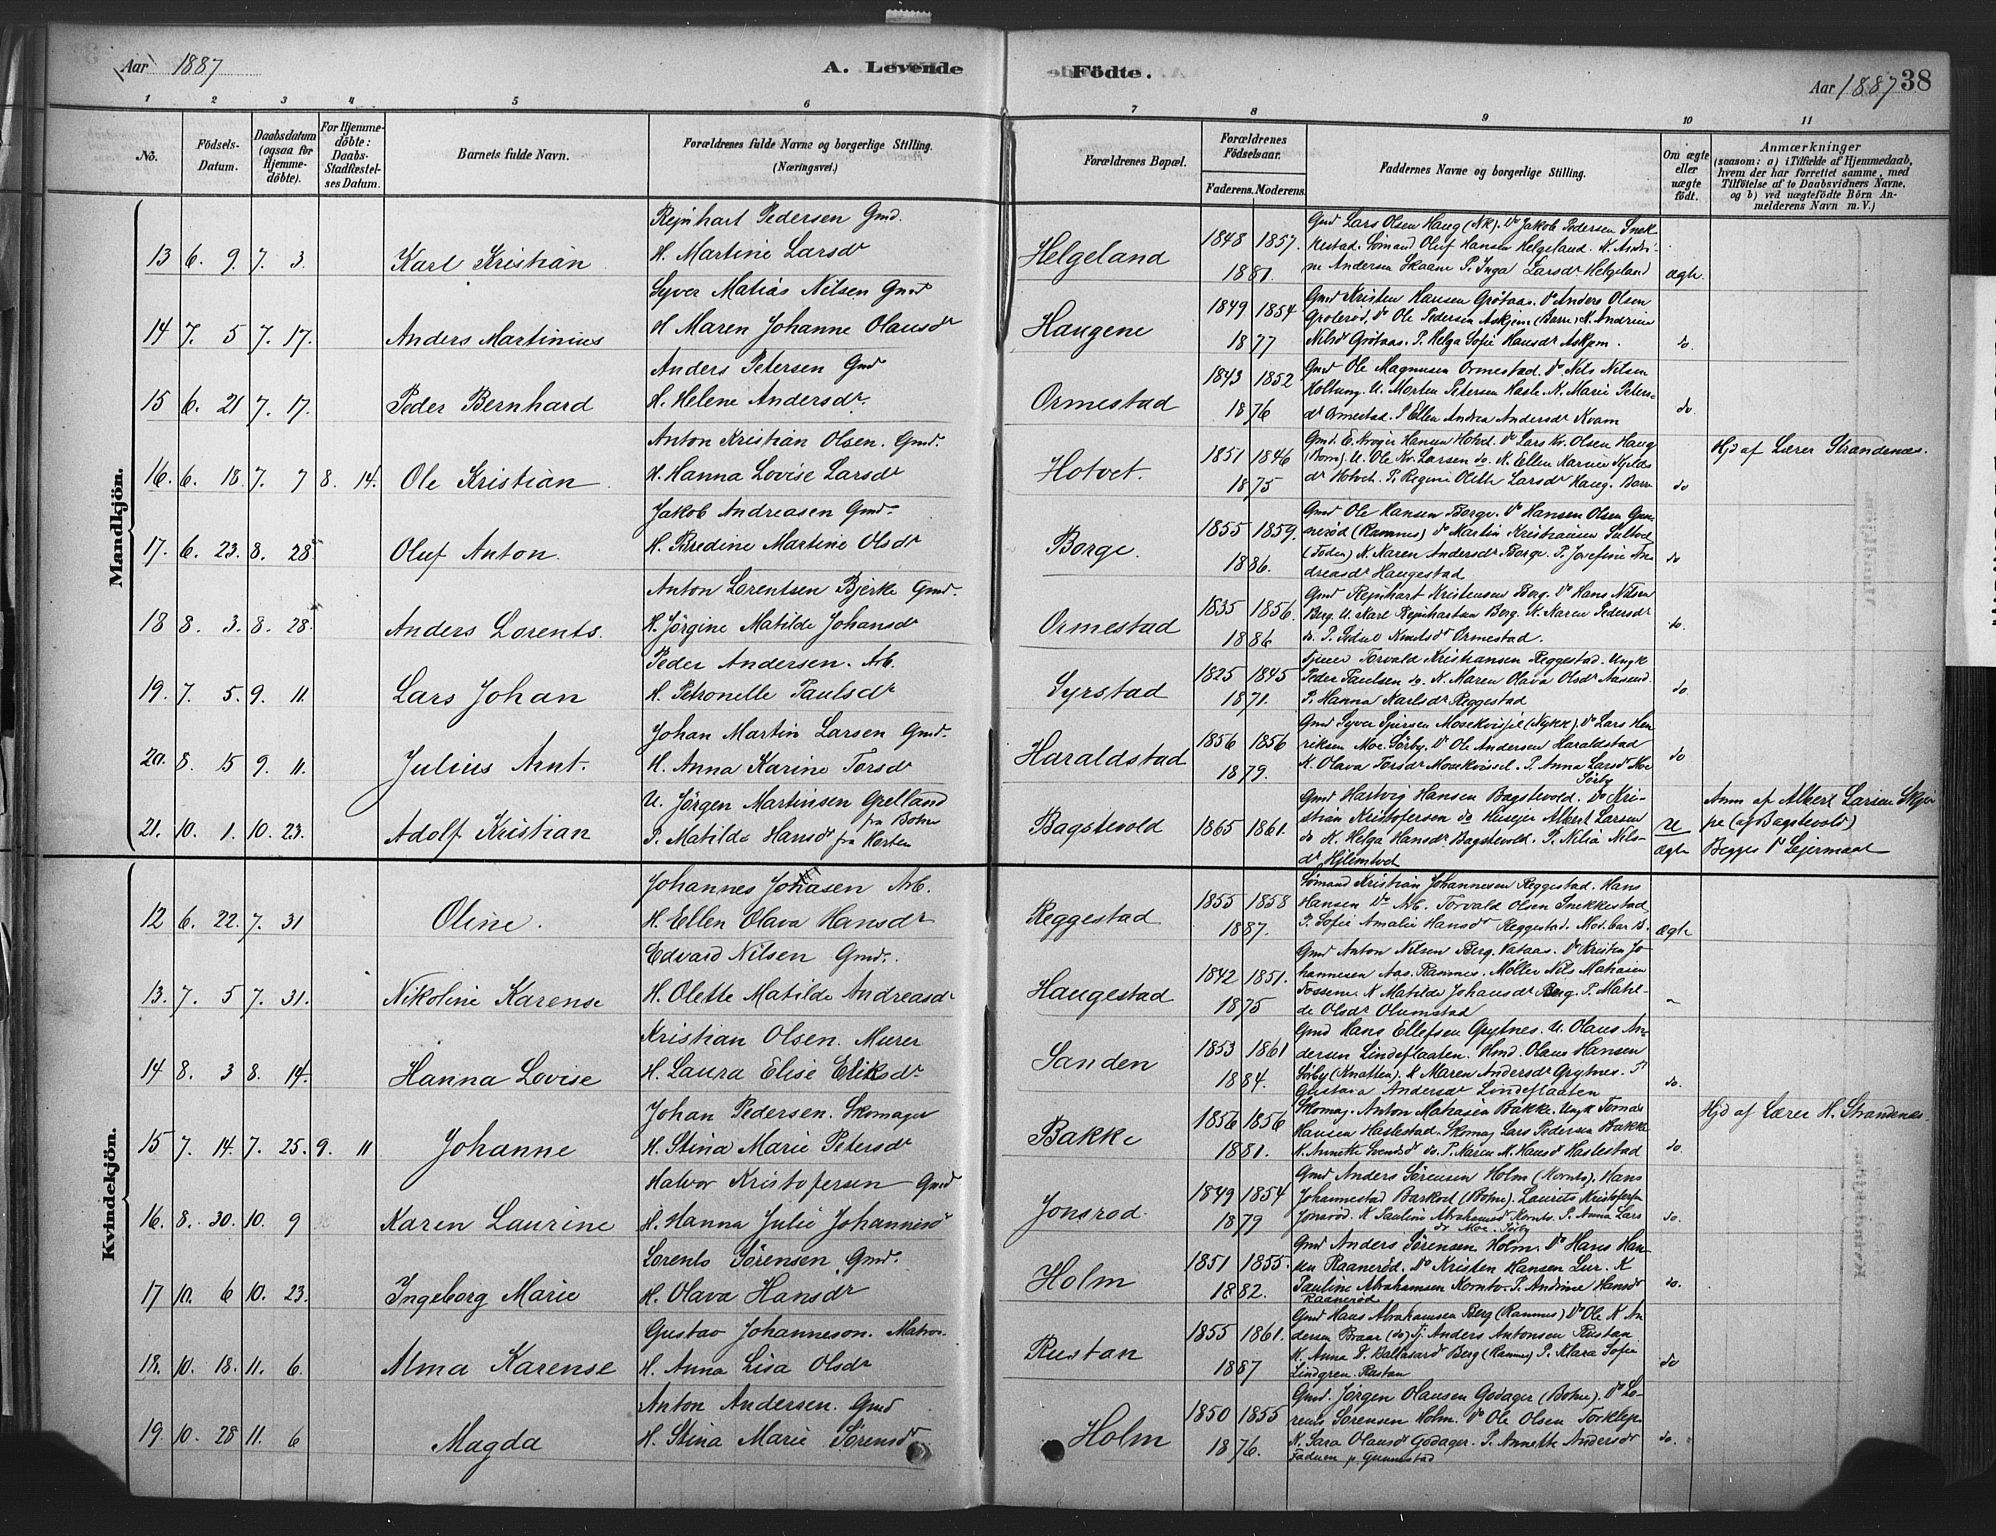 Aar 1887
A. Levende Födte.
Aar 1887 38
1 2 3 4 5 6 7 8 9 10 11
No.
Födsels-Datum.
Daabsdatum (ogsaa for Hjemme-döbte).
For Hjemme-döbte: Daabs-Stadfæstel-ses Datum.
Barnets fulde Navn.
Forældrenes fulde Navne og borgerlige Stilling. (Næringsvei.)
Forældrenes Bopæl.
Forældrenes Födselsaar.
Faderens. Moderens.
Faddernes Navne og borgerlige Stilling.
Om ægte eller uægte födt.
Anmærkninger (saasom: a) i Tilfælde af Hjemmedaab, hvem der har forrettet samme, med Tilföielse af to Daabsvidners Navne, og b) ved uægtefödte Börn An-melderens Navn m. V.)
Mandkjön.
Rejnhart Pedersen Gmd.
13 6. 9. 7. 3. Karl Kristian H. Martine Larsdr Helgeland 1848 1857. 1881 ægte.
Gmd Lars Olsen Haug (Nk). Do Jakob Pedersen Snek-
kestad. Sømand Oluf Hansen Helgeland. K. Andri-
ne Andersen Skaane P. Inga Larsdr Helgeland
Syver Matias Nilsen Gmd
14 7. 5 7. 17. Anders Martinius H Maren Johanne Olausdr Haugene 1849 1854 1877 do.
Gmd Kristen Hansen Grötaas. Do Anders Olsen
Grolerød. Do Ole Pedersen Askjem (Barre) K. Andrine
Nilsdr Grötaas. P. Helga Sofie Hansdr Askjem.
Anders Petersen Gmd
15 6. 21 7. 17. Peder Bernhard H. Helene Andersdr. Ormestad 1843 1852 1876 do
Gmd Ole Magnusen Ormestad. Do Nils Nilsen
Holtung. U. Morten Petersen Hasle. K. Marie Peters-
dr Ormestad. P Ellen Andrea Andersdr Kvam
Anton Kristian Olsen. Gmd.
16. 6. 18. 7. 7 8. 14. Ole Kristian H. Hanna Lovise Larsdr Hotvet. 1851 1846 1875 do
Hansen Hotvd. Do Lars Kr. Olsen Haug
U. Ole Kr. Larsen do. K. Ellen Marie
dr Hotvet. P. Regine Olette Larsdr Haug.
Hjd af Lærer Strandenæs.
Jakob Andreasen Gmd.
17. 6. 23. 8. 28. Oluf Anton. H. Bredine Martine Olsdr Borge. 1855 1859. 1886. do
Gmd Ole Hansen Borge. Do Hansen Olsen Gun-
nerød (Ramnes) Do Martin Kristiansen
K. Karen Andersdr Borge. P. Josefine An-
dreasdr Haugestad
Anton Lorentsen Bjerke Gmd.
18 8. 3. 8. 28. Anders Lorents. H. Jörgine Matilde Johansdr Ormestad 1835 1856. 1886 do.
Gmd Rejnhart Kristensen Berg. Do Hans Nilsen
Berg. U. Karl Rejnhartsen Berg. K. Maren Pedersdr
do. P. Knutsdr Ormestad.
Peder Andersen. Arb.
19. 7. 5. 9. 11. Lars Johan H. Petronelle Paulsdr Syrstad 1825 1845 1871. do
Torvald Kristiansen Reggestad. Ungk
Peder Paulsen do. K. Maren Olava Olsdr Aasend.
P. Hanna Karlsdr Reggestad
Johan Martin Larsen Gmd.
20. 8. 15 9. 11. Julius Arnt. H. Anna Karine Torsdr Haraldstad 1856 1856 1879. do
Gmd Syver (Nykk). Do Lars Hen-
riksen Moe. Sörby. Do Ole Andersen Haraldstad
K. Olava Torsdr P. Anna Larsdr Moe
Sörby
U. Jörgen Martinsen Gjelland fra Botne
21. 10. 1. 10. 23. Adolf Kristian P. Matilde Hansdr fra Horten Bagstevold 1865 1861. U ægte
Gmd Hartvig Hansen Bagstevold. Do Kri-
stian Kristofersen do Husejer Albert Larsen
do K. Helga Hansdr Bagstevold. P. Nilia Nils-
dr
Anm af Albert Larsen
(af Bagstevold)
Begges 1ste Lejermaal
Kvindekjön.
Johannes Johasen Arb.
12 6. 22. 7. 31 Oline. H. Ellen Olava Hansdr Reggestad 1855 1858 1887. ægte
Sömand Kristian Johannesen Reggestad. Hans
Hansen Do Arb. Torvald Olsen Snekkestad
P. Sofie Amalie Hansdr Reggestad. Mod. bar B.
Edvard Nilsen Gmd.
13. 7. 5 7. 31. Nikoline Karense H. Olette Matilde Andreasdr Haugestad 1842 1851. 1875
Gmd Anton Nilsen Berg. Vataas. Do Kristen Jo-
hannesen Aas. Ramnes. Møller Nils Matiasen
Fossene. K Matilde Johansdr Berg. P. Matil-
de Olsdr Olumstad
Kristian Olsen. Murer
14 8. 3 8. 14. Hanna Lovise H. Laura Elise Eriksdr Sanden 1853 1861 1884. do.
Gmd Hans Ellefsen Grytnes. U. Olaus An-
dersen Lindeflaaten. Hmd. Olaus Hansen
Sörby (Knatten). K Maren Andersdr Grytnes. P
Gustava Andersdr Lindeflaaten
Johan Pedersen. Skomager
15 7. 14. 7. 25. 9. 11 Johanne H. Stina Marie Petersdr Bakke 1856 1856 1881. do.
Skomag. Anton Matiasen Bakke. Ungk Tomas
Hansen Haslestad. Skomag Lars Pedersen Bakke
K. Annette Svendsdr do. P. Maren M. Hansdr Haslestad
Hjd af Lærer H. Strandenæs.
Halvor Kristofersen Gmd
16. 8. 30. 10. 9 Karen Laurine H. Hanna Julie Johannesdr Jonsrød 1849 1854 1879 do.
Gmd Anders Sörensen Holm (Kornto). Hans
Johannestad Barkod (Botne). Laurits Kristofersen
Jonsrød. K Pauline Abrahamsdr Kornto. P. Anna Lars
dr Moe. Sörby
Lorents Sörensen. Gmd.
17 10. 6 10. 23. Ingeborg Marie H. Olava Hansdr Holm 1851 1855. 1882. do.
Gmd Anders Sörensen Holm. Do Hans Han-
sen Raanerød. Do Kristen Hansen Lur. K
Pauline Abrahamsen Kornto. P. Andrine Hansdr
Raanerød
Gustav Johanneson. Matros.
18. 10. 18. 11. 6. Alma Karense H. Anna Lisa Olsdr Rustan 1855 1861. 1887 do
Gmd Hans Abrahamsen Berg (Ramnes) Do Ole K An-
dersen Braar (do) Anders Antonsen Rustan
K. Anna Baltasardr Berg (Ramnes) P. Klara Sofie
Lindgren. Rustan
Anton Andersen. Gmd
19. 10. 28 11. 6 Magda H. Stina Marie Sörensdr Holm 1850 1855 1876. do.
Gmd. Jörgen Olausen Godager (Botne). Do Lo-
rents Sörensen Holm. Do Ole Olsen
K. Sara Olausdr Godager. P. Annette Andersdr
Fadum p Gunnestad